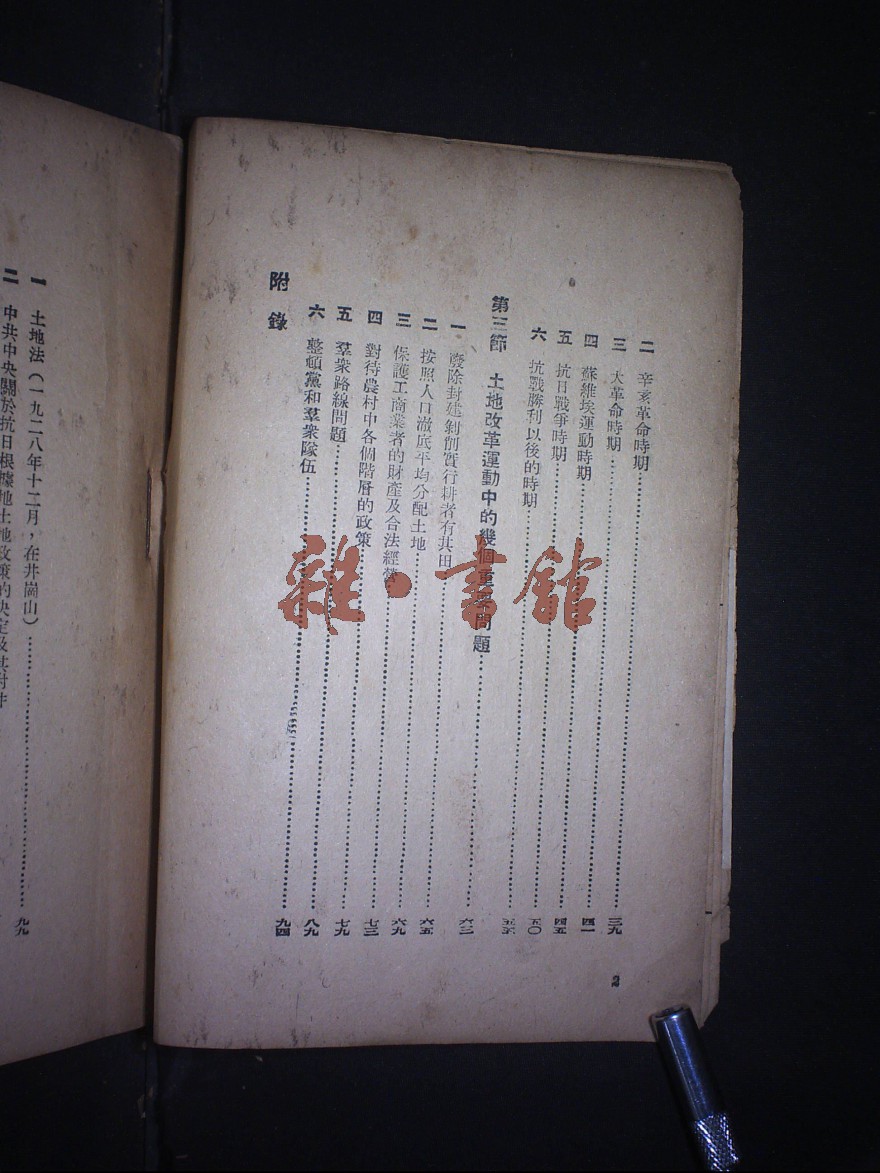 二 辛亥革命時期……三九
三 大革命時期……四一
四 蘇維埃運動時期……四五
五 抗日戰爭時期……五〇
六 抗戰勝利以後的時期……五五
第三節 土地改革運動中的幾個重要問題……六三
一 廢除封建剝削實行耕者有其田……六五
二 按照人口澈底平均分配土地……六九
三 保護工商業者的財產及合法經營……七三
四 對待農村中各個階層的政策……七九
五 羣衆路線問題……八九
六 整頓黨和羣衆隊伍……九四
附錄
2
一 土地法(一九二八年十二月,在井崗山)……九九
二 中共中央關於抗日根據地土地政策的決定及其附件
雜·書館